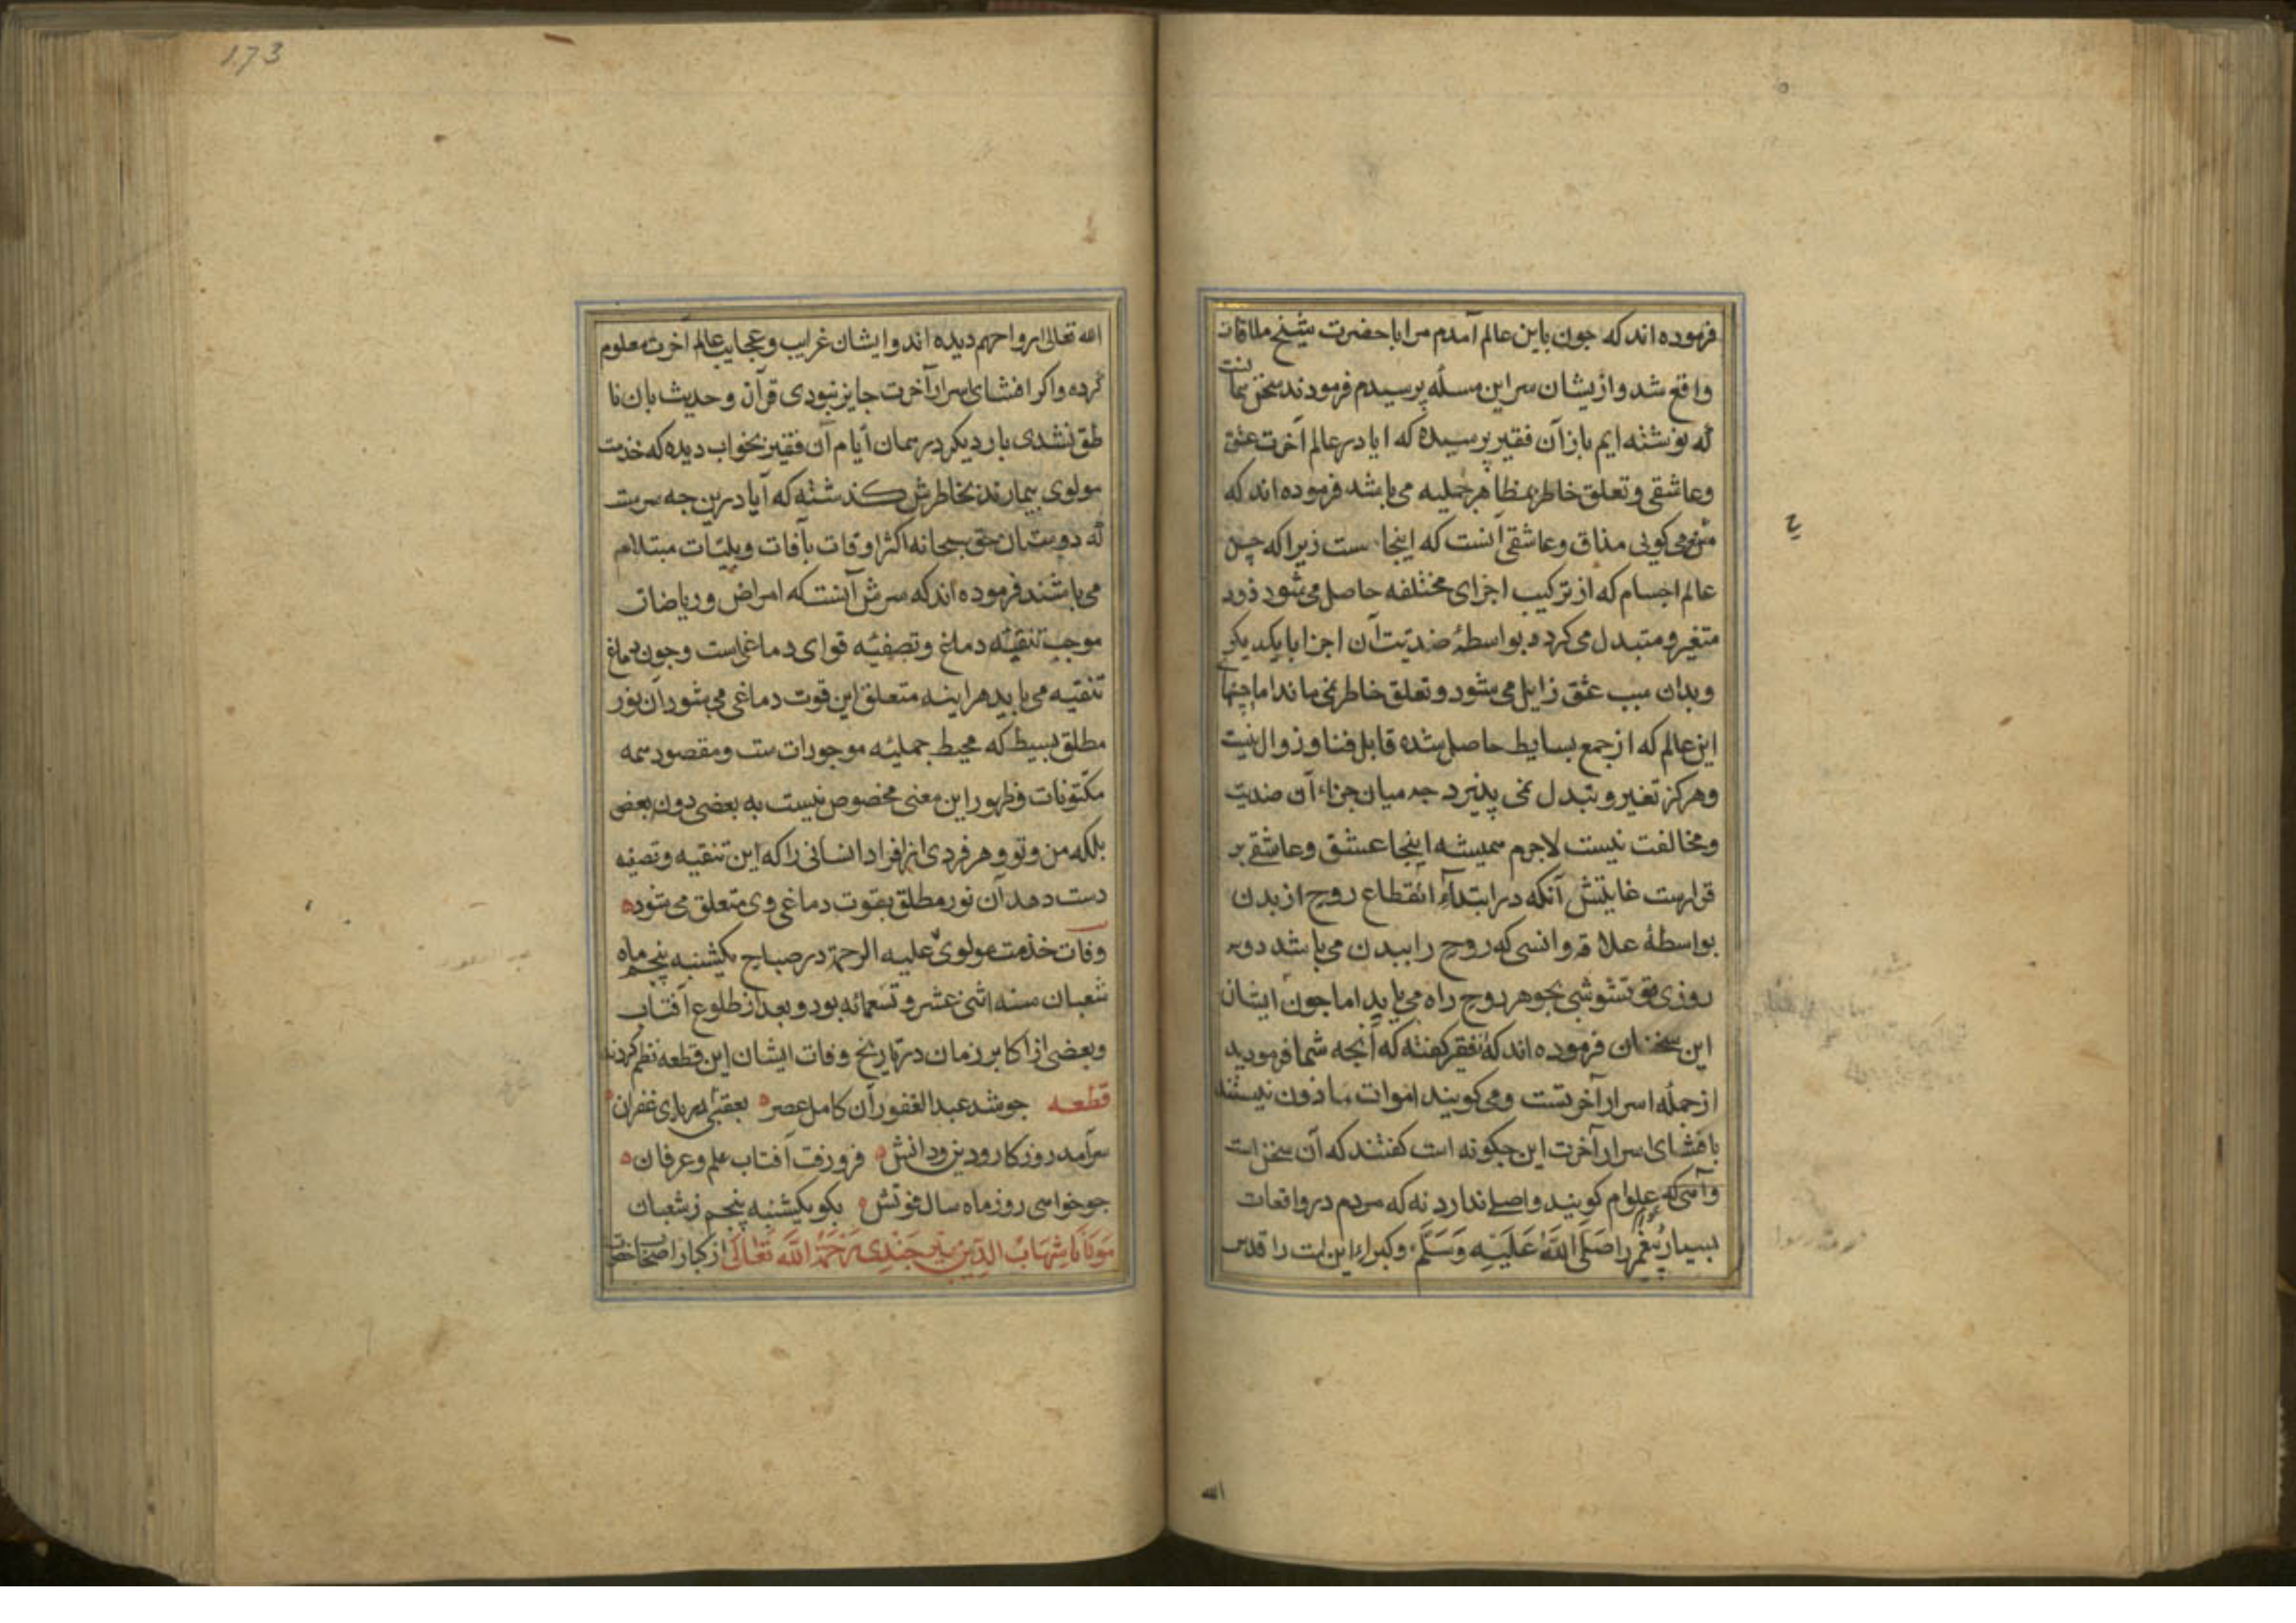 فرموده اند که جون باین عالم آمدم مرا با حضرت شیخ ملاقات
واقع شد و ازیشان سر این مسئله پرسیدم فرمودند سخن همانست
که نوشته ایم باز آن فقیر پرسیده که ایا در عالم آخرت عشق
وعاشقی و تعلق خاطر بمظاهر جمیله می باشد فرموده اند که
می کویی مذاق وعاشقی آنست که اینجاست زیرا که حسن
عالم اجسام که از ترکیب اجزای مختلفه حاصل می شود زود
متغیر و متبدل می کردد بواسطهٔ ضدیت آن اجزا بایکدیکر
وبدان سبب عشق زایل می شود و تعلق خاطر نمی ماند اما حسنهای
این عالم که از جمع بسایط حاصل شده قابل فنا و زوال نیست
وهرکز تغیر و تبدل نمی پذیرد جه میان اجزاء آن ضدیت
ومخالفت نیست لاجرم همیشه اینجا عشق وعاشقی بر
قرارست غایتش آنکه در ابتداء انقطاع روح از بدن
بواسطهٔ علاقه و انسی که روح را ببدن می باشد دوسه
روزی تشویشی بجوهر روح راه می یابد اما جون ایشان
این سخنان فرموده اند که فقیر کفته که آنجه شما فرمودید
از جمله اسرار آخرتست ومی کویند اموات مأذون نیستند
بافشای اسرار آخرت این جکونه است کفتند که آن سخن است
که عوام کویند واصلی ندارد نه که مردم در واقعات
بسیار پیغمبر را صَلَّی اللهُ عَلَیْهِ وَسَلَّم وکبراء این امت را قدس
الله
173
الله تعالی ارواحهم دیده اند و ایشان غرایب وعجایب عالم آخرت معلوم
کرده واکر افشای اسرار آخرت جایز نبودی قرآن وحدیث بان نا
طق نشدی بار دیکر در همان ایام آن فقیر بخواب دیده که خدمت
مولوی بیمارند بخاطرش کذشته که آیا درین جه سرست
که دوستان حق سبحانه اکثر اوقات بآفات وبلیّات مبتلا
می باشند فرموده اند که سرش آنست که امراض وریاضات
موجب تنقیهٔ دماغ وتصفیهٔ قوای دماغی است وجون دماغ
تنقیه می یابد هراینه متعلق این قوت دماغی می شود آن نور
مطلق بسیط که محیط جملیهٔ موجودات ست ومقصود همه
مکنونات وظهور این معنی مخصوص نیست به بعضی دون بعض
بلکه من وتو وهر فردی از افراد انسانی را که این تنقیه وتصفیه
دست دهد آن نور مطلق بقوت دماغی وی متعلق می شود
وفات خدمت مولوی علیه الرحمة در صباح یکشنبه پنجم ماه
شعبان سنه اثنی عشر و تسعمائه بود وبعد از طلوع آفتاب
وبعضی از اکابر زمان در تاریخ وفات ایشان این قطعه نظم کردند
قطعه جو شد عبدالغفور آن کامل عصر بعقبی غفران
سرآمد روزکار ودین ودانش فرورفت آفتاب علم وعرفان
جو خواهی روز ماه سال فوتش بکو یکشنبه پنجم زشعبان
مَولانا شِهَابُ الدِّین بیرجَندِی رَحْمَةُ اللَّه تَعَالَی از کبار اصحاب